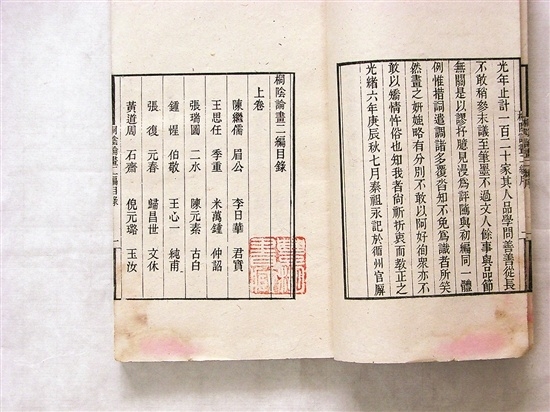 光年止計一百二十家其人品學問善善從長
不敢稍參末議至筆墨不過文人餘事與品節
無關是以謬抒臆見漫爲評隲與初編同一體
例惟措詞遣調諸多覆沓知不免爲識者所笑
然畫之妍媸略有分別不敢以阿好徇衆亦不
敢以矯情忤俗也知我者尙祈折衷而教正之
光緒六年庚辰秋七月秦祖永記於循州官廨
桐陰論畫二編目錄
上卷
陳繼儒 眉公 李日華 君實
王思任 季重 米萬鍾 仲詔
張瑞圖 二水 陳元素 古白
鍾惺 伯敬 王心一 純甫
張復 元春 歸昌世 文休
黃道周 石齋 倪元璐 玉汝
桐陰論畫二編目錄 一